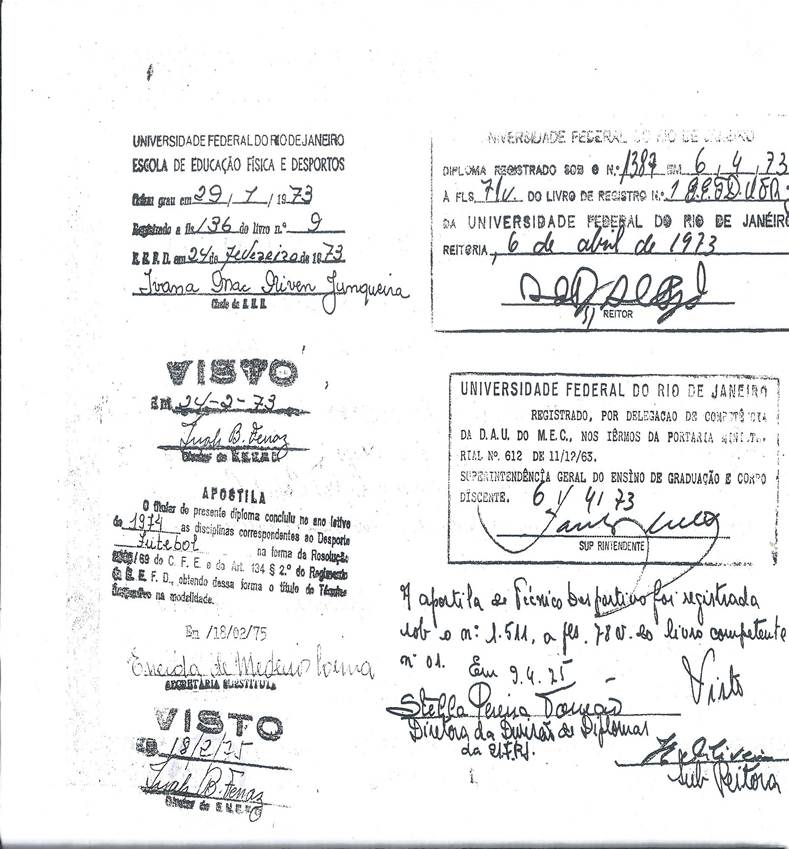 UNIVERSIDADE FEDERAL DO RIO DE JANEIRO
ESCOLA DE EDUCAÇÃO FÍSICA E DESPORTOS
grau em 29 / 1 / 1973
Registrado a fls. 136 do livro n.º 9
E. E. F. D. em 24 de Fevereiro de 1973
Ivana Mac Niven Junqueira
Chefe da
VISTO
Em 24-2-73
B. Ferraz
APOSTILA
O titular do presente diploma concluiu no ano letivo
de 1974 as disciplinas correspondentes ao Desporto
Futebol na forma da Resolução
/69 do C. F. E. e do Art. 134 § 2.º do Regimento
da E. E. F. D., obtendo dessa forma o título de Técnico
Desportivo na modalidade.
Em /18/02/75
Eneida de Medeiros
SECRETÁRIA SUBSTITUTA
VISTO
18/2/75
B. Ferraz
UNIVERSIDADE FEDERAL DO RIO DE JANEIRO
DIPLOMA REGISTRADO SOB O N.º 1387 EM 6 , 4 , 73
À FLS. 71v. DO LIVRO DE REGISTRO N.º 1
DA UNIVERSIDADE FEDERAL DO RIO DE JANEIRO
REITORIA, 6 de abril de 1973
REITOR
UNIVERSIDADE FEDERAL DO RIO DE JANEIRO
REGISTRADO, POR DELEGACAO DE COMPETÊNCIA
DA D.A.U. DO M.E.C., NOS TÊRMOS DA PORTARIA MINISTE.
RIAL Nº. 612 DE 11/12/63.
SUPERINTENDÊNCIA GERAL DO ENSINO DE GRADUAÇÃO E CORPO
DISCENTE. 6 / 4 / 73
SUP RINTENDENTE
A apostila de Técnico Desportivo foi registrada
sob o nº 1.511, a fls. 78v. do livro competente
nº 01. Em 9.4.75
Visto
Stella Pereira
Diretora da Divisão de Diplomas
da UFRJ.
Sub-Reitora